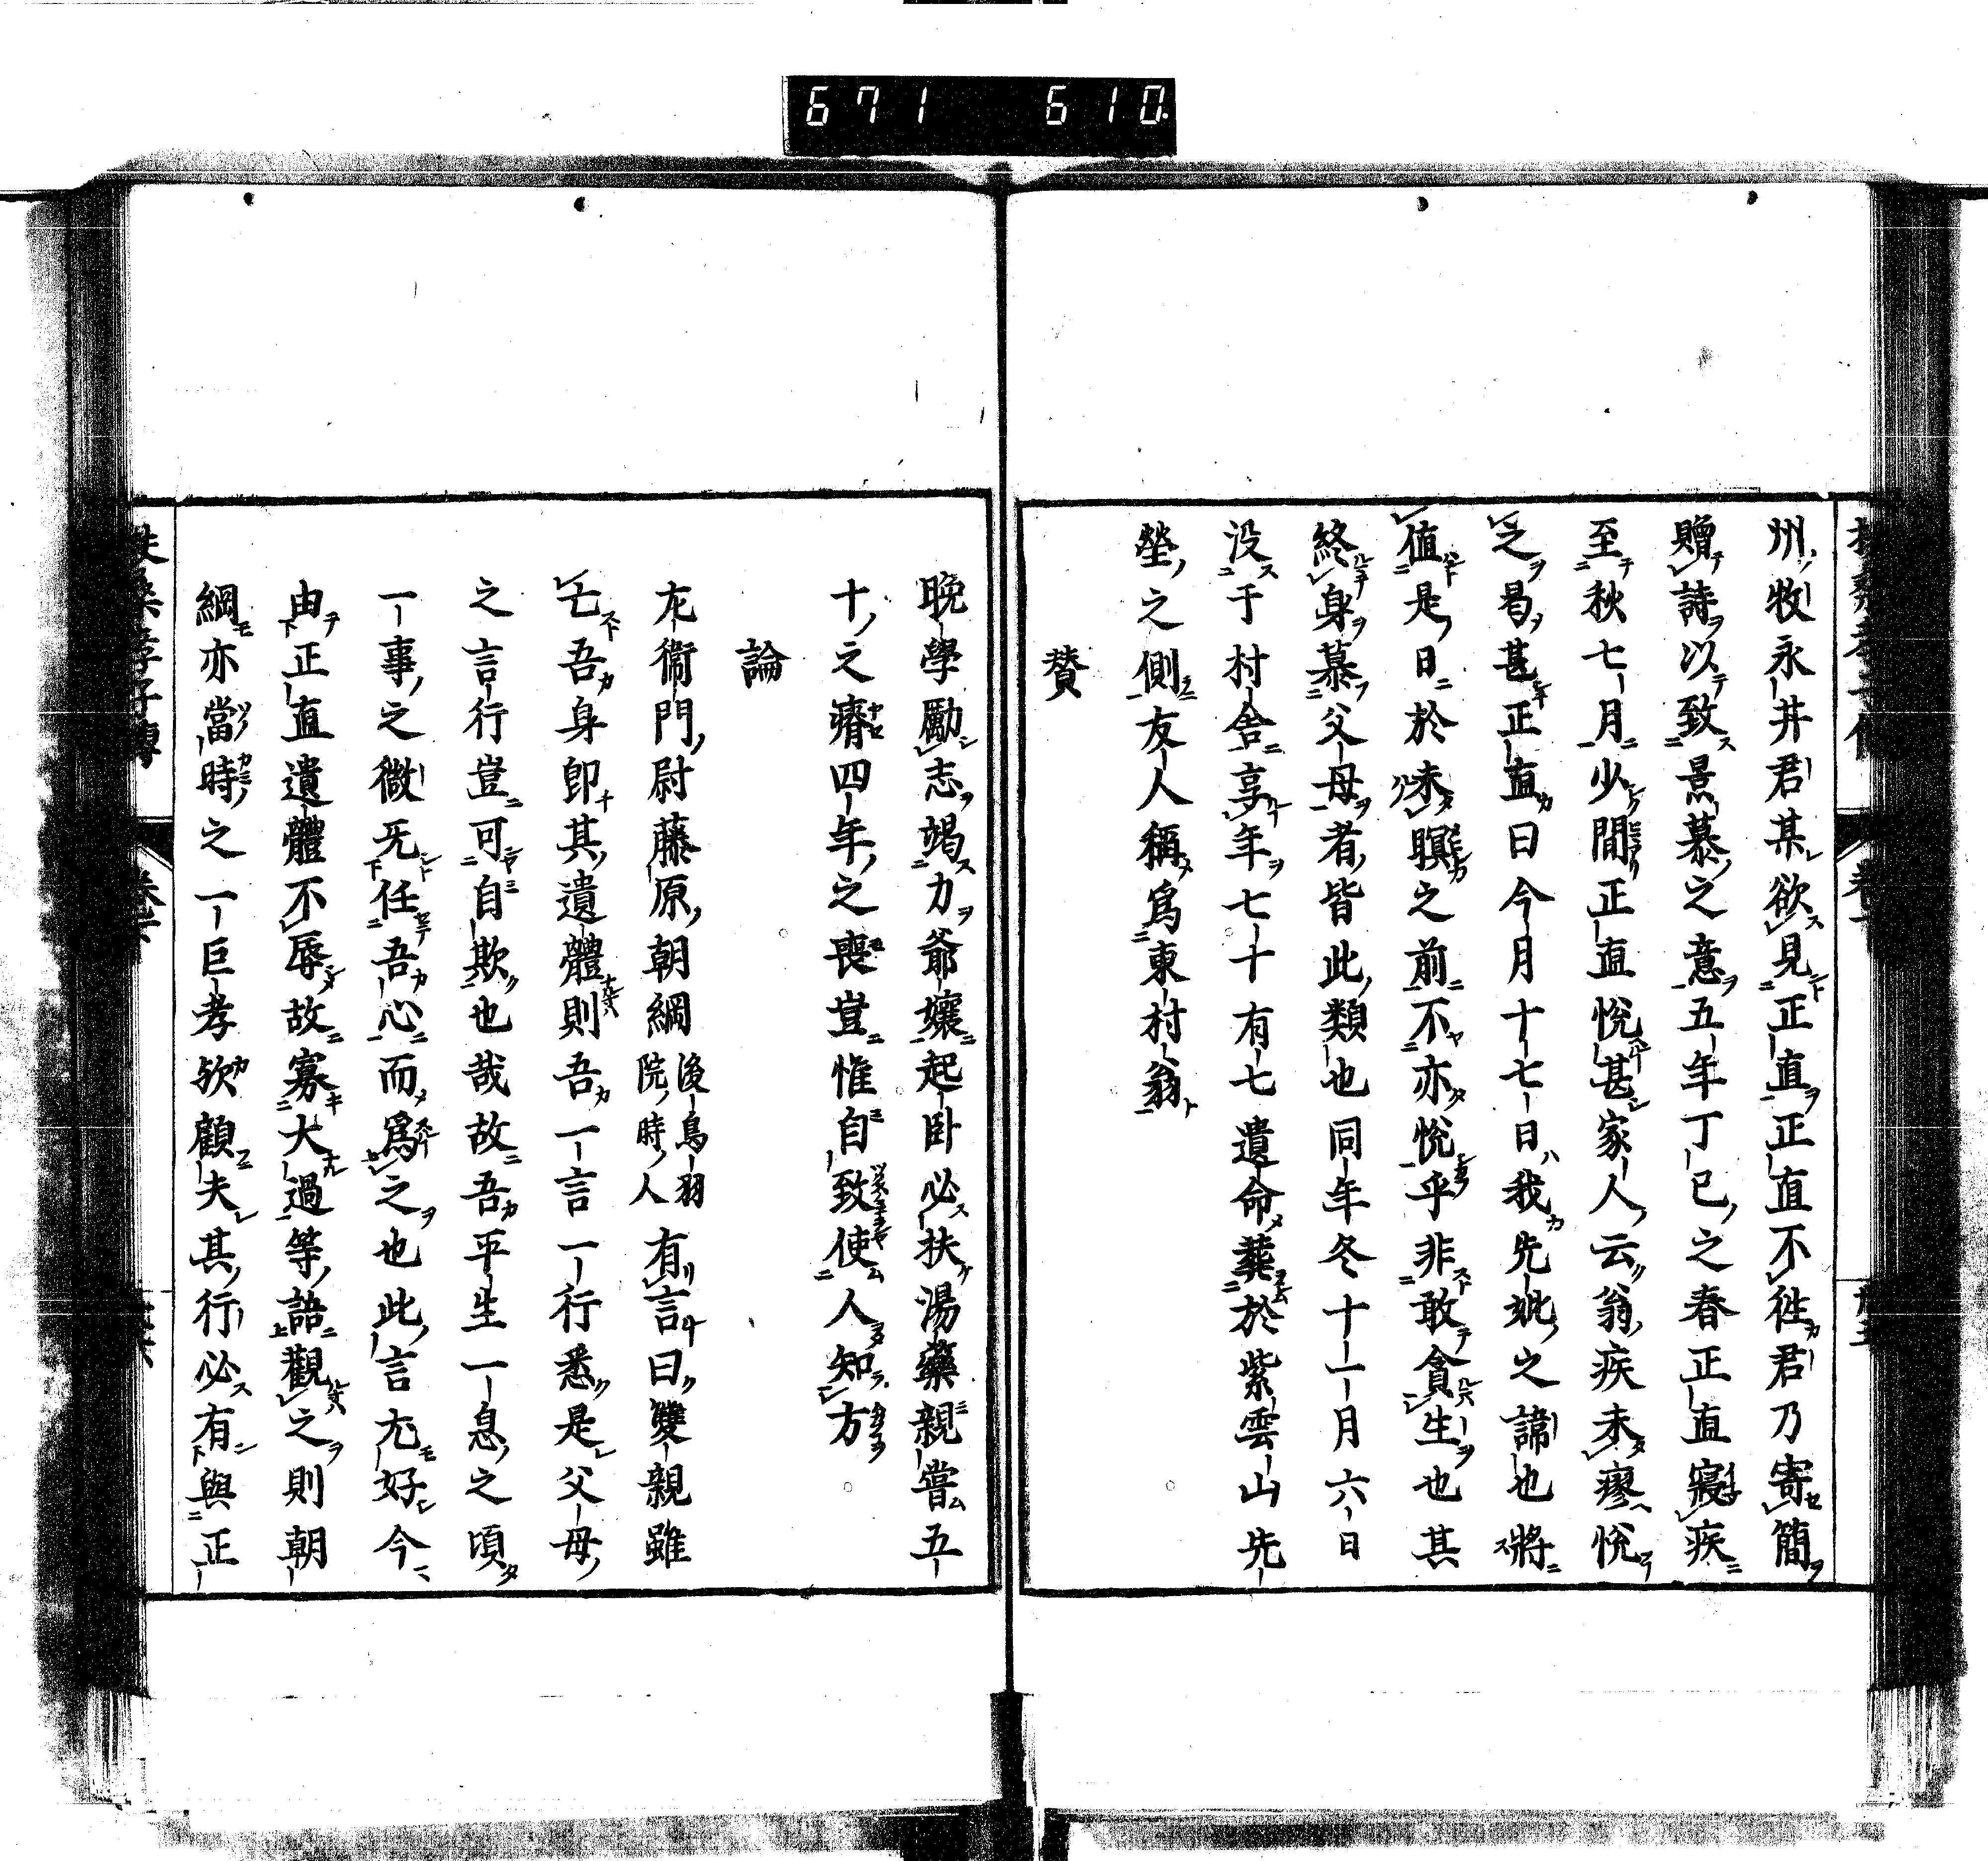 671 610
州牧永井君某欲見正直正直不往君乃寄簡
贈詩以致景慕之意五年丁巳之春正直寢疾
至秋七月少間正直悅甚家人云翁疾未瘳悅
之曷甚正直曰今月十七日我先妣之諱也將
値是日於未瞑之前不亦悅乎非敢貪生也其
終身慕父母者皆此類也同年冬十一月六日
没于村舍享年七十有七遺命葬於紫雲山先
塋之側友人稱爲東村翁
賛
晩學勵志竭力爺孃起臥必扶湯藥親嘗五
十之瘠四年之喪豈惟自致使人知方
論
左衞門尉藤原朝綱後鳥羽院時人有言曰雙親雖
亡吾身卽其遺體則吾一言一行悉是父母
之言行豈可自欺也哉故吾平生一息之頃
一事之微无任吾心而爲之也此言尤好今
由正直遺體不辱故寡大過等語觀之則朝
綱亦當時之一巨孝欤顧夫其行必有與正
扶桑孝子傳